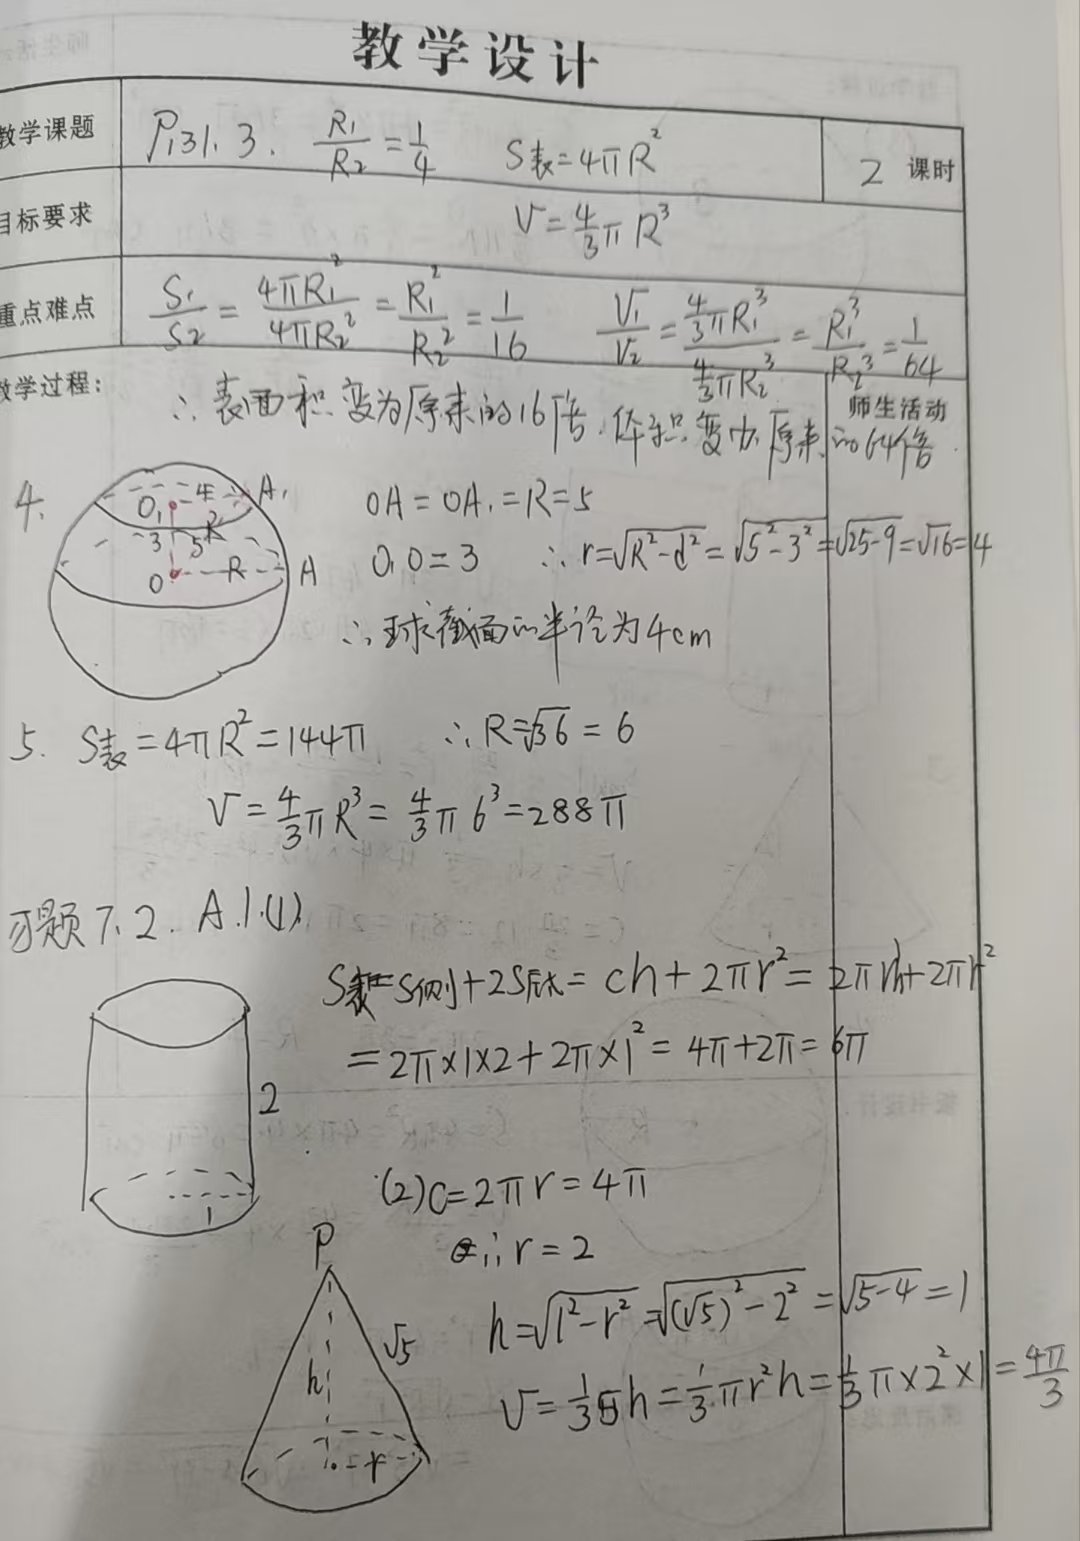 教学设计
教学课题 P131.3. R₁/R₂=1/4 S表=4πR² 2 课时
目标要求 V=4/3πR³
重点难点 S₁/S₂=4πR₁²/4πR₂²=R₁²/R₂²=1/16 V₁/V₂=4/3πR₁³/4/3πR₂³=R₁³/R₂³=1/64
教学过程: 师生活动
∴表面积变为原来的16倍.体积变为原来的64倍.
4.
O₁ 4 A₁
3 5 R
O R A
OA=OA₁=R=5
O₁O=3 ∴r=√(R²-d²)=√(5²-3²)=√(25-9)=√16=4
∴球截面的半径为4cm
5. S表=4πR²=144π ∴R=√36=6
V=4/3πR³=4/3π6³=288π
习题7.2. A.1.(1).
S表=S侧+2S底=ch+2πr²=2πrh+2πr²
=2π×1×2+2π×1²=4π+2π=6π
2
1
(2)C=2πr=4π
∴r=2
P
h √5
r
h=√(l²-r²)=√((√5)²-2²)=√(5-4)=1
V=1/3Sh=1/3πr²h=1/3π×2²×1=4π/3